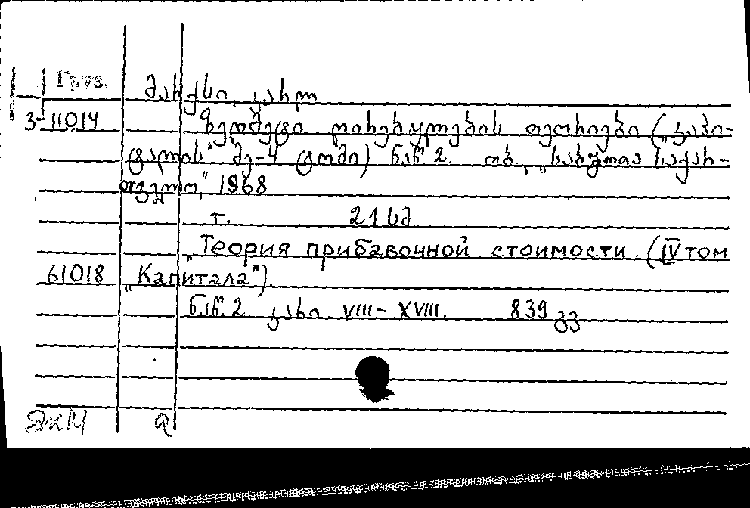 Груз.
მარქსი, კარლ
3-11014 ზედმეტი ღირებულების თეორიები („კაპი-
ტალის" მე-4 ტომი) ნაწ. 2. თბ., „საბჭოთა საქარ-
თველო," 1968
т. 21 სმ
„Теория прибавочной стоимости (IV том
61018 „Капитала")
ნაწ. 2 კარი VIII-XVIII. 839 გვ